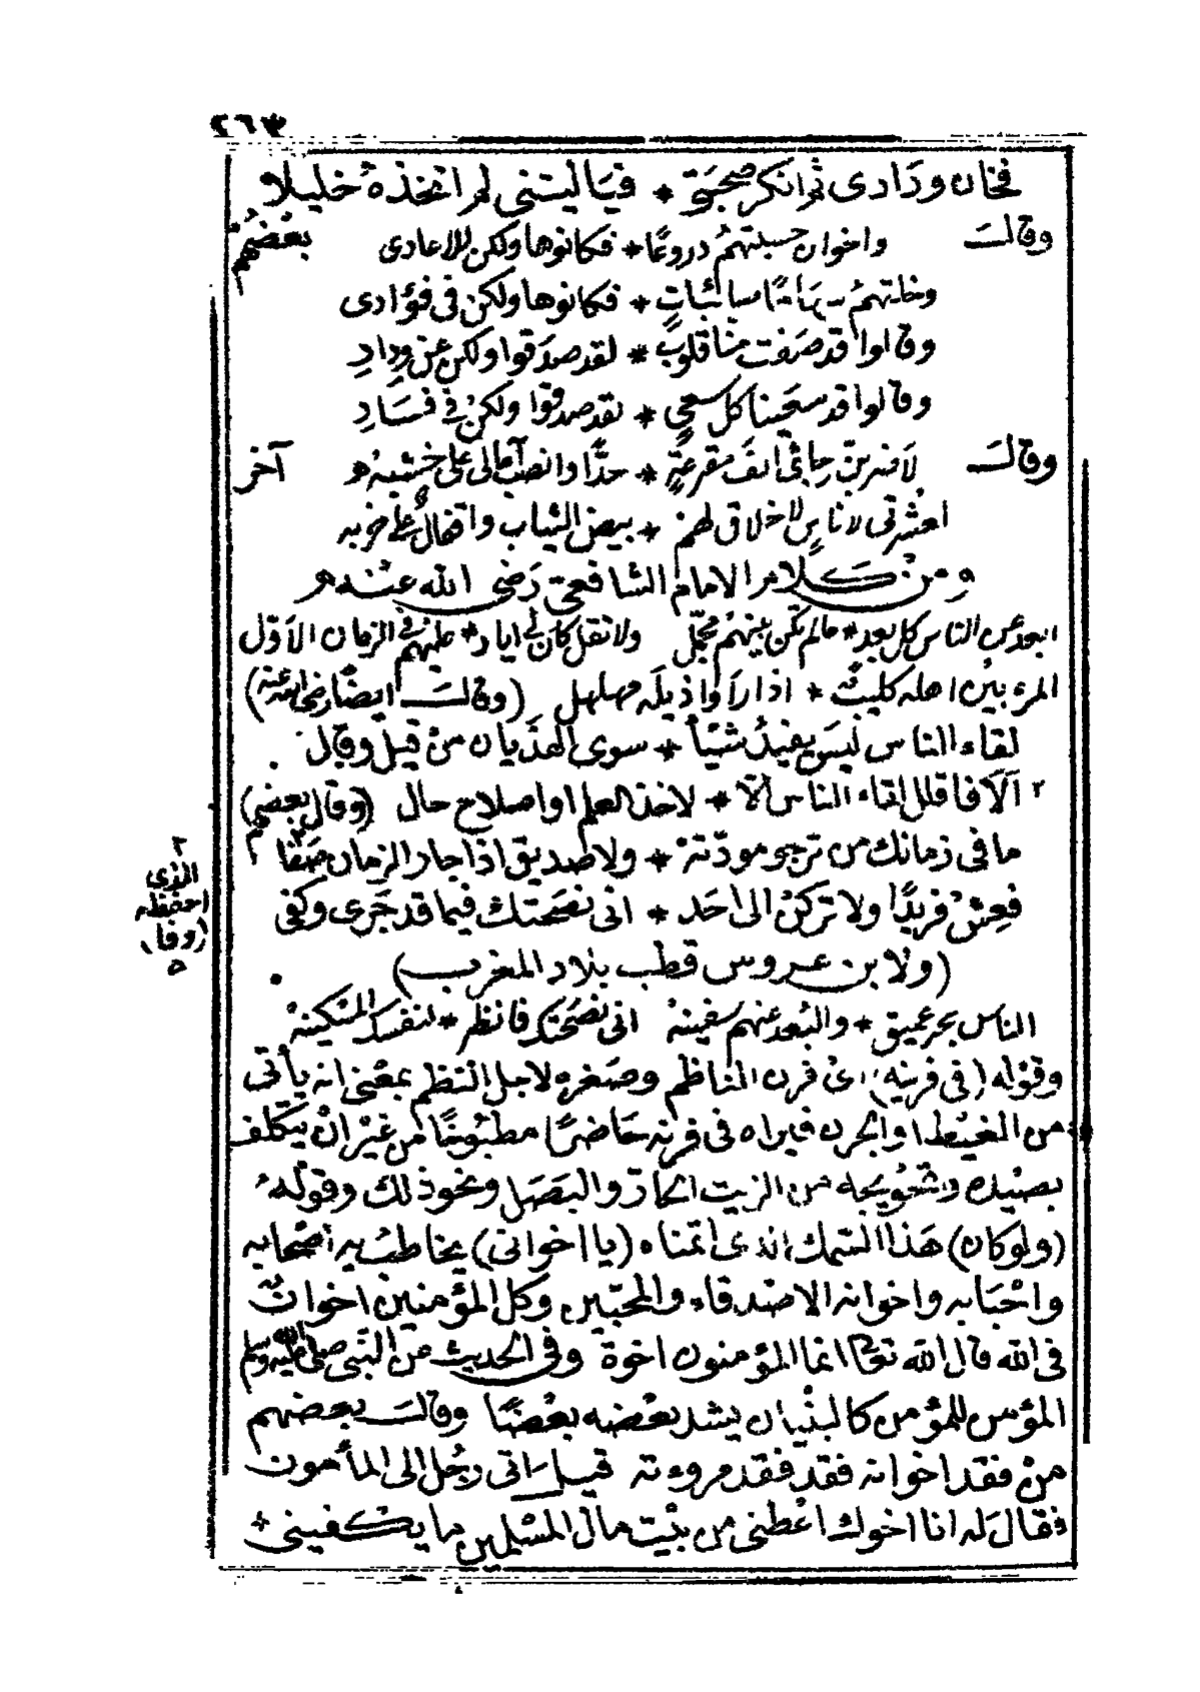 ٢٦٣
فخان ودادى ثم انكر صحبتى * فيا ليتنى لم اتخذه خليلا
وقالـــ بعضهم واخوان حسبتهم دروعًا * فكانوها ولكن للاعادى
وخلتهم سهامًا صائبات * فكانوها ولكن فى فؤادى
وقالوا قد صفت منا قلوب * لقد صدقوا ولكن عن ودادِ
وقالوا قد سعينا كل سعىٍ * لقد صدقوا ولكن فى فسادِ
وقالـــ آخر لاضربن حِمائى الف مقرعةٍ * حدًّا وانصب آمالى على خشبه
اعثرتى لاناسٍ لا خلاق لهم * بيض الثياب واقفالٌ على خربه
ومن كلام الامام الشافعى رضى الله عنه
ابعد عن الناس كل بعد * مالم تكن بينهم مجمّل ولا تقل كان لى اياد * عليهم فى الزمان الاوّل
المرء بين اهله كليث * اذا رأوا ذيله مهلهل (وقالـــ ايضًا رضى الله عنه)
لقاء الناس ليس يفيد شيئًا * سوى الهذيان من قيل وقال
٢ اَلَا فاقلل لقاء الناس الّا * لاخذ العلم او اصلاح حال (وقال بعضهم)
ما فى زمانك من ترجو مودّته * ولا صديق اذا جار الزمان صفا ٢
فعِشْ فريدًا ولا تركن الى احَد * انى نصحتك فيما قد جَرى وكفى
٢
الذى
احفظه
(وفا)
٥
(ولابن عروس قطب بلاد المغرب)
الناس بحر عميق * والبُعد عنهم سفينه انى نصحتك فانظر * لنفسك المسكينه
وقوله (فى فرينه) اى فرن الناظم وصغره لاجل النظم بمعنى انه يأتى
من الغيط او الجرن فيراه فى فرنه حَاضرًا مطبُوخًا من غير ان يتكلف
بصيده وتحويجه من الزيت الحارّ والبصَل ونحو ذلك وقوله
(ولو كان) هَذا السمك الذى اتمناه (يا اخوانى) يخاطب به اصحابه
واحْبَابه واخوانه الاصدقاء والمحبّين وكل المؤمنين اخوانٌ
فى الله قال الله تعا انما المؤمنون اخوة وفى الحديث عن النبى صلى الله عليه وسلم
المؤمن للمؤمن كالبنْيان يشد بعضه بعْضًا وقالـــ بعضهم
من فقد اخوانه فقد فقد مروءته قيل اتى رجُل الى المأمون
فقال له انا اخوك اعْطنى من بيْت مال المسْلمين ما يكفينى